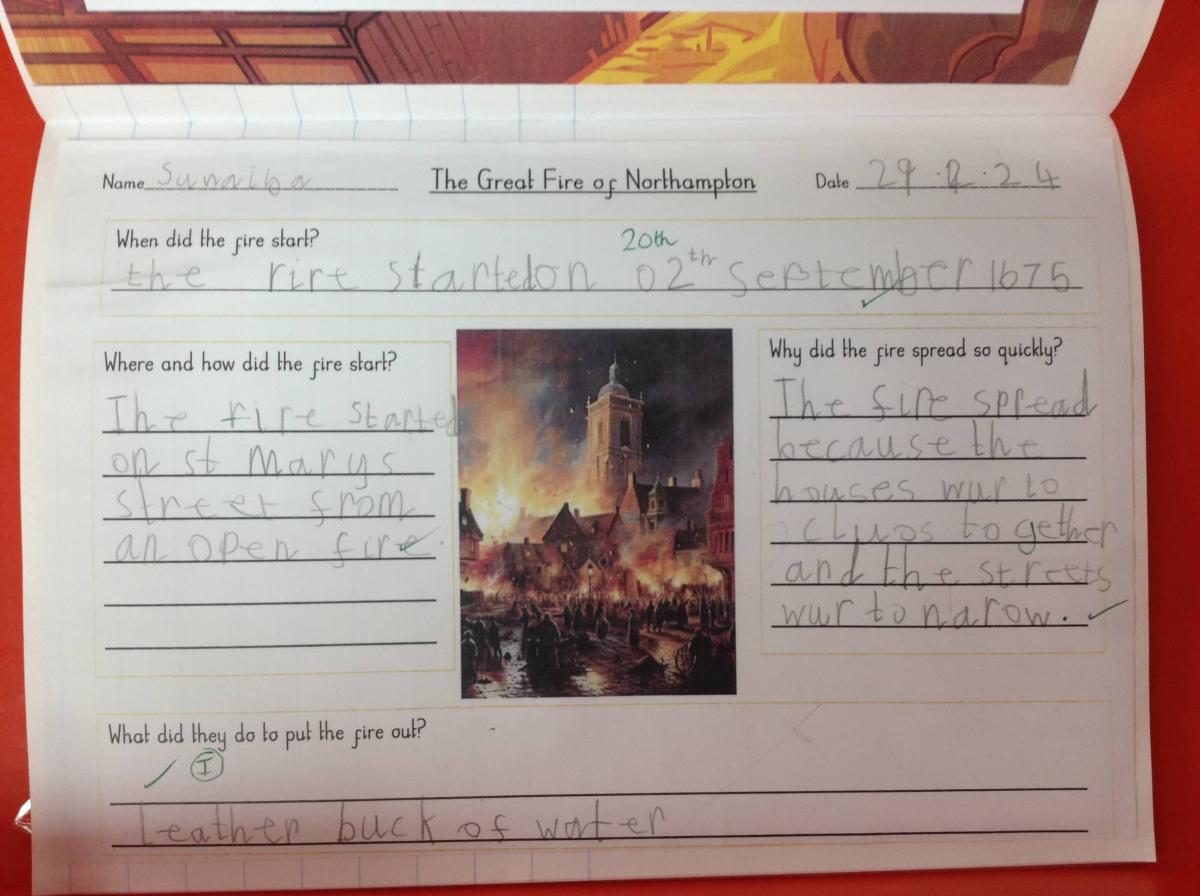 Name Sunaiba The Great Fire of Northampton Date 29.2.24
When did the fire start?
20th
the rire startedon 02th september 1675
Where and how did the fire start?
The fire started
on st Marys
street from
an open fire.
Why did the fire spread so quickly?
The fire spread
because the
houses wur to
cluos together
and the streets
wur to narow.
What did they do to put the fire out?
I
Leather buck of water